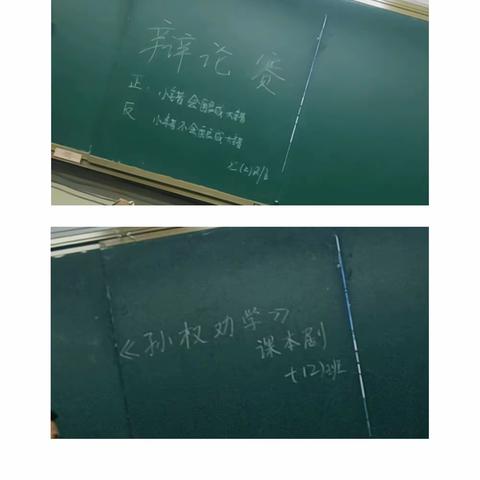 辩论赛
正：小错会酿成大错
反 小错不会酿成大错
七(2)班
《孙权劝学》
课本剧
七(2)班